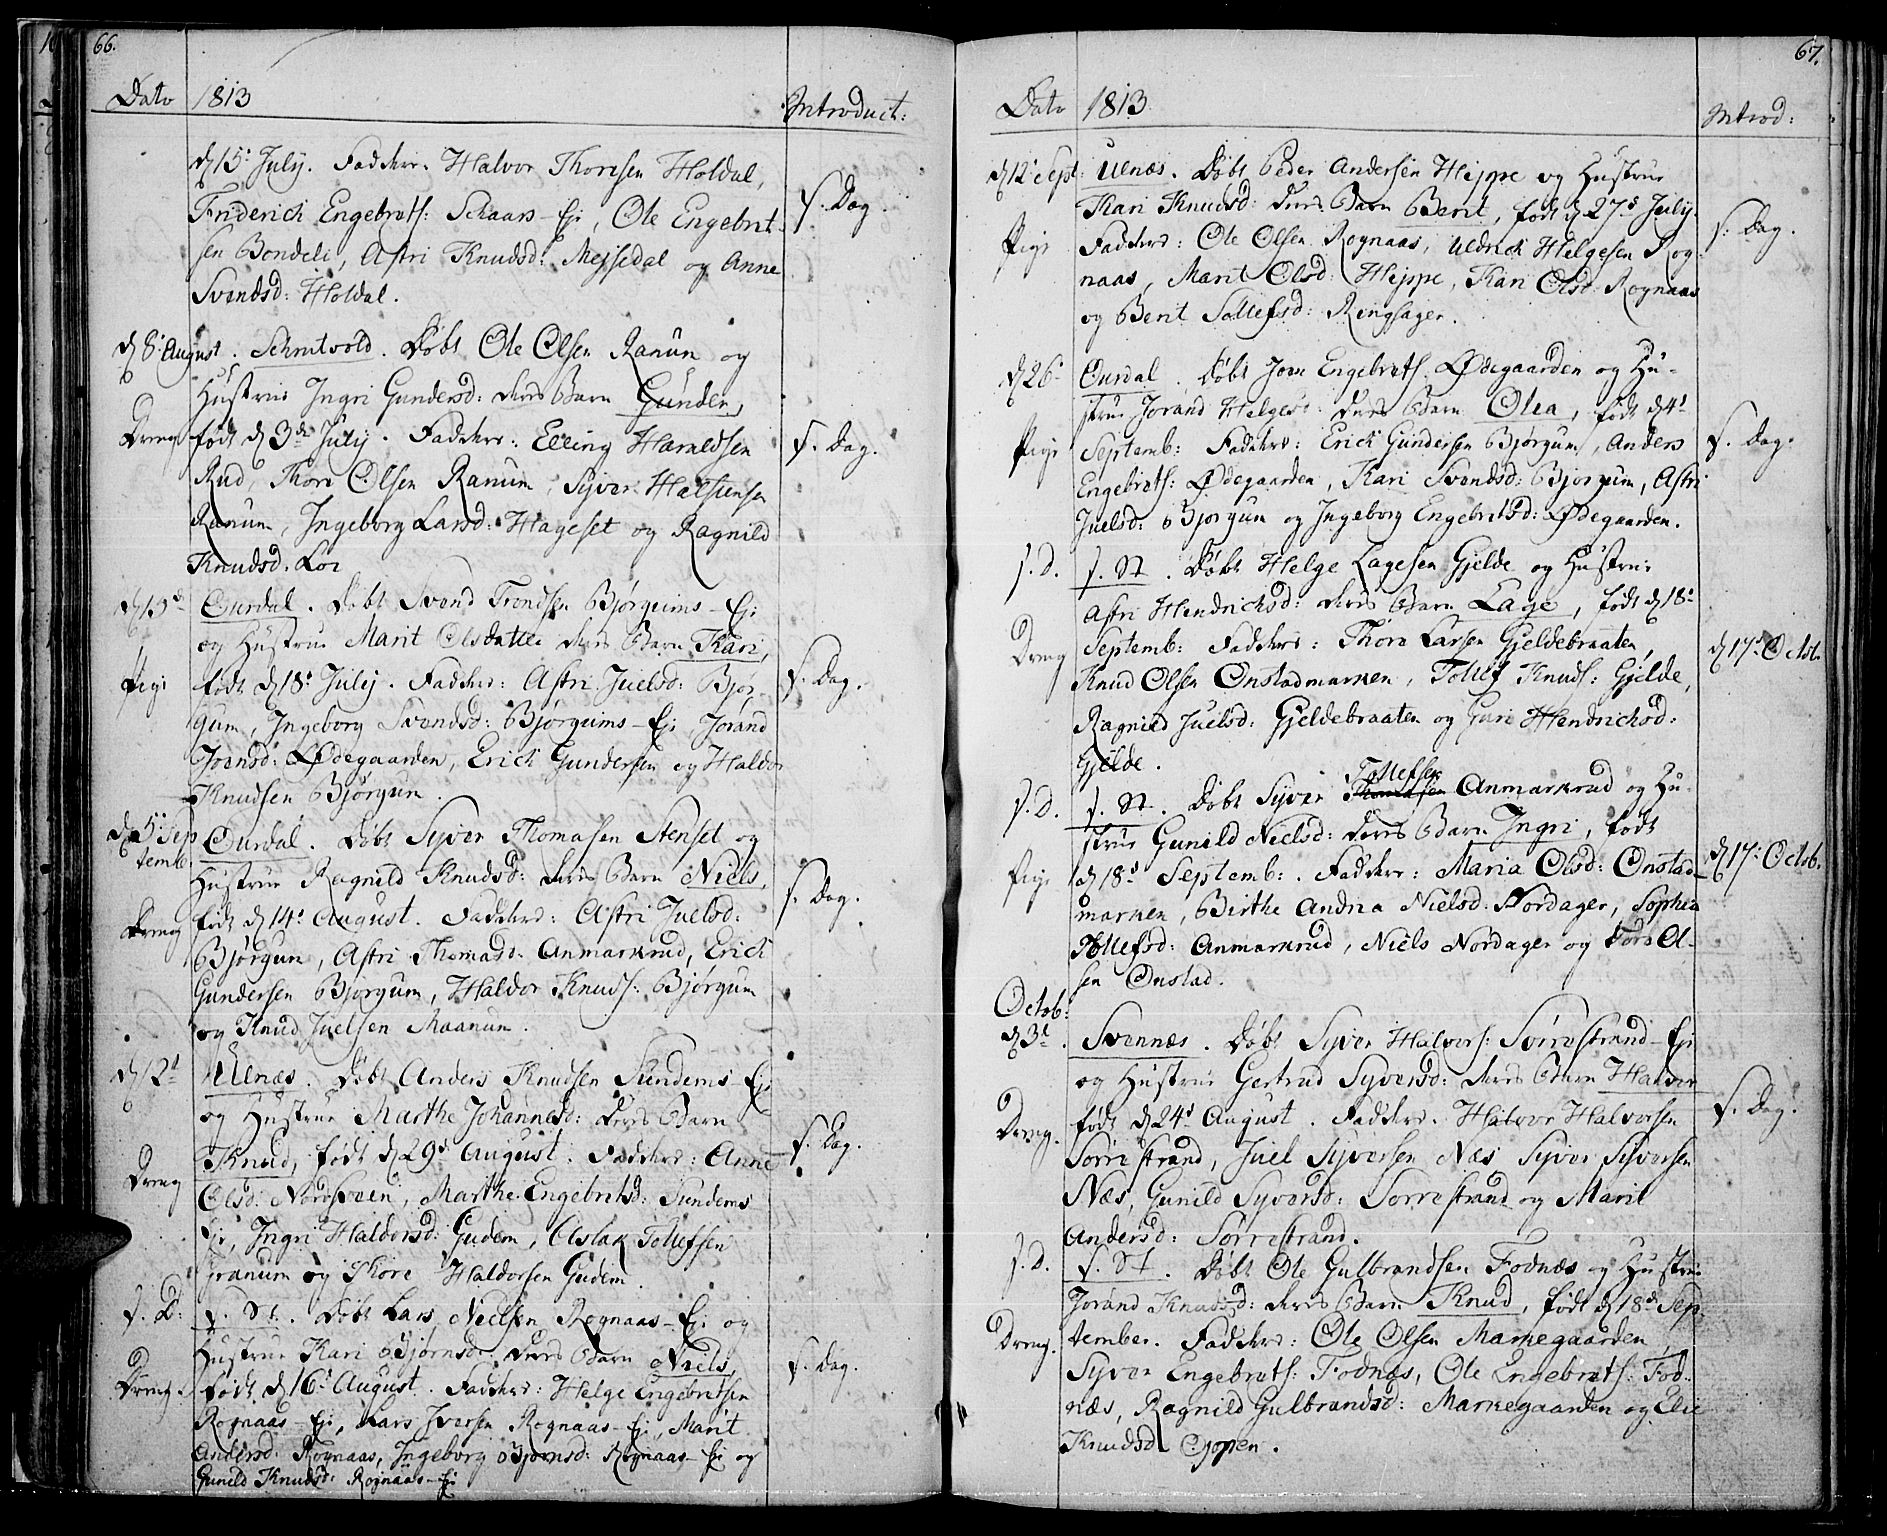 66.
Dato 1813 Introduct:
d 15de July. Faddere. Halvor Thoresen Holdal, s. Dag.
Friderich Engebrets: Schaars-Eje, Ole Engebret-
sen Bondeli, Astri Knudsd: Mejsedal og Anne
Svendsd: Holdal.
d 8de August. Schrutvold. Døbt Ole Olsen Ranum og
Hustrue Ingri Gundersd: deres Barn Gunder,
Dreng født d 3de July. Faddere: Elling Haraldsen s. Dag.
Rud, Thore Olsen Ranum, Syver Halstensen
Ranum, Ingeborg Larsd: Hageset og Ragnild
Knudsd. Loe
d 15de Ourdal. Døbt Svend Trondsen Bjørgums-Eje
og Hustrue Marit Olsdatter deres Barn Kari,
Pige født d 18de July. Faddere: Astri Juelsd: Bjør- s. Dag.
gum, Ingeborg Svendsd: Bjørgums-Eje, Jorand
Joensd: Ødegaarden, Erick Gundersen og Haldor
Knudsen Bjørgum.
d 5te Sep
temb. Ourdal. Døbt Syver Thomasen Stenset og
Hustrue Ragnild Knudsd: deres Barn Niels,
Dreng født d 14de August. Faddere: Astri Juelsd: s. Dag.
Bjørgum, Astri Thomasd. Anmarkrud, Erick
Gundersen Bjørgum, Haldor Knuds: Bjørgum
og Knud Juelsen Maanum.
d 12te Ulnæs. Døbt Anders Knudsen Sundems-Eje
og Hustrue Marthe Johannesd: deres Barn
Dreng Knud, født d 29de August. Faddere: Anne s. Dag.
Olsd: Nordsveen, Marthe Engebretsd: Sundems-
Eje, Ingri Haldorsd: Gudem, Aslak Tollefsen
Granum og Thore Haldorsen Gudem.
s. D. s. St. Døbt Lars Nielsen Rognaas-Eje og
Hustrue Kari Bjørnsd: deres Barn Niels,
Dreng. født d 16de August. Faddere: Helge Engebretsen s. Dag.
Rognaas-Eje, Lars Iversen Rognaas-Eje, Marit
Andersd: Rognaas, Ingeborg Bjørnsd: Rognaas-Eje og
Gunild Knudsd: Rognaas-Eje
67.
Dato 1813 Introd:
d 12te Sept: Ulnæs. Døbt Peder Andersen Hippe og Hustrue
Kari Knudsd: deres Barn Berit, født d 27de July.
Pige Faddere: Ole Olsen Rognaas, Uldrich Helgesen Rog- s. Dag.
naas, Marit Olsd: Hippe, Kari Olsd: Rognaas
og Berit Tollefsd: Ringsager.
d 26de Ourdal. Døbt Joen Engebrets: Ødegaarden og Hu-
strue Jorand Helgesd: deres Barn Olea, født d 4de
Pige Septemb: Faddere: Erick Gundersen Bjørgum, Anders s. Dag.
Engebrets: Ødegaarden, Kari Svendsd: Bjørgum, Astri
Juelsd: Bjørgum og Ingeborg Engebretsd: Ødegaarden.
s. D. s. St. Døbt Helge Lagesen Gjelde og Hustrue
Astri Hendrichsd: deres Barn Lage, født d 18de
Dreng Septemb: Faddere: Thore Larsen Gjeldebraaten, d 17de Octob.
Knud Olsen Onstadmarken, Tollef Knuds: Gjelde,
Ragnild Juelsd: Gjeldebraaten og Guri Hendrichsd:
Gjelde.
s. D. s. St. Døbt Syver Thomasen Tollefsen Anmarkrud og Hu-
strue Gunild Nielsd: deres Barn Ingri, født
Pige d 18de Septemb:. Faddere: Maria Olsd: Onstad- d 17de Octob.
marken, Birthe Andrea Nielsd: Nordager, Sophia
Tollefsd: Anmarkrud, Niels Nordager og Tord Ol-
sen Onstad.
Octob:
d 3de. Svennæs. Døbt Syver Halvors: Sørrestrand-Eje
og Hustrue Gertrud Syversd: deres Barn Halvor
Dreng. født d 24de August. Faddere. Halvor Halvorsen s. Dag.
Sørrestrand, Juel Syversen Næs Syver Syversen
Næs, Gunild Syversd: Sørrestrand og Marit
Andersd: Sørrestrand.
s. D. s. St. Døbt Ole Gulbrandsen Fodnæs og Hustrue
Jorand Knudsd: deres Barn Knud, født d 18de Sep-
Dreng. tember. Faddere: Ole Olsen Markegaarden,
Syver Engebrets: Fodnæs, Ole Engebrets: Fod-
næs, Ragnild Gulbrandsd: Markegaarden og Elie
Knudsd